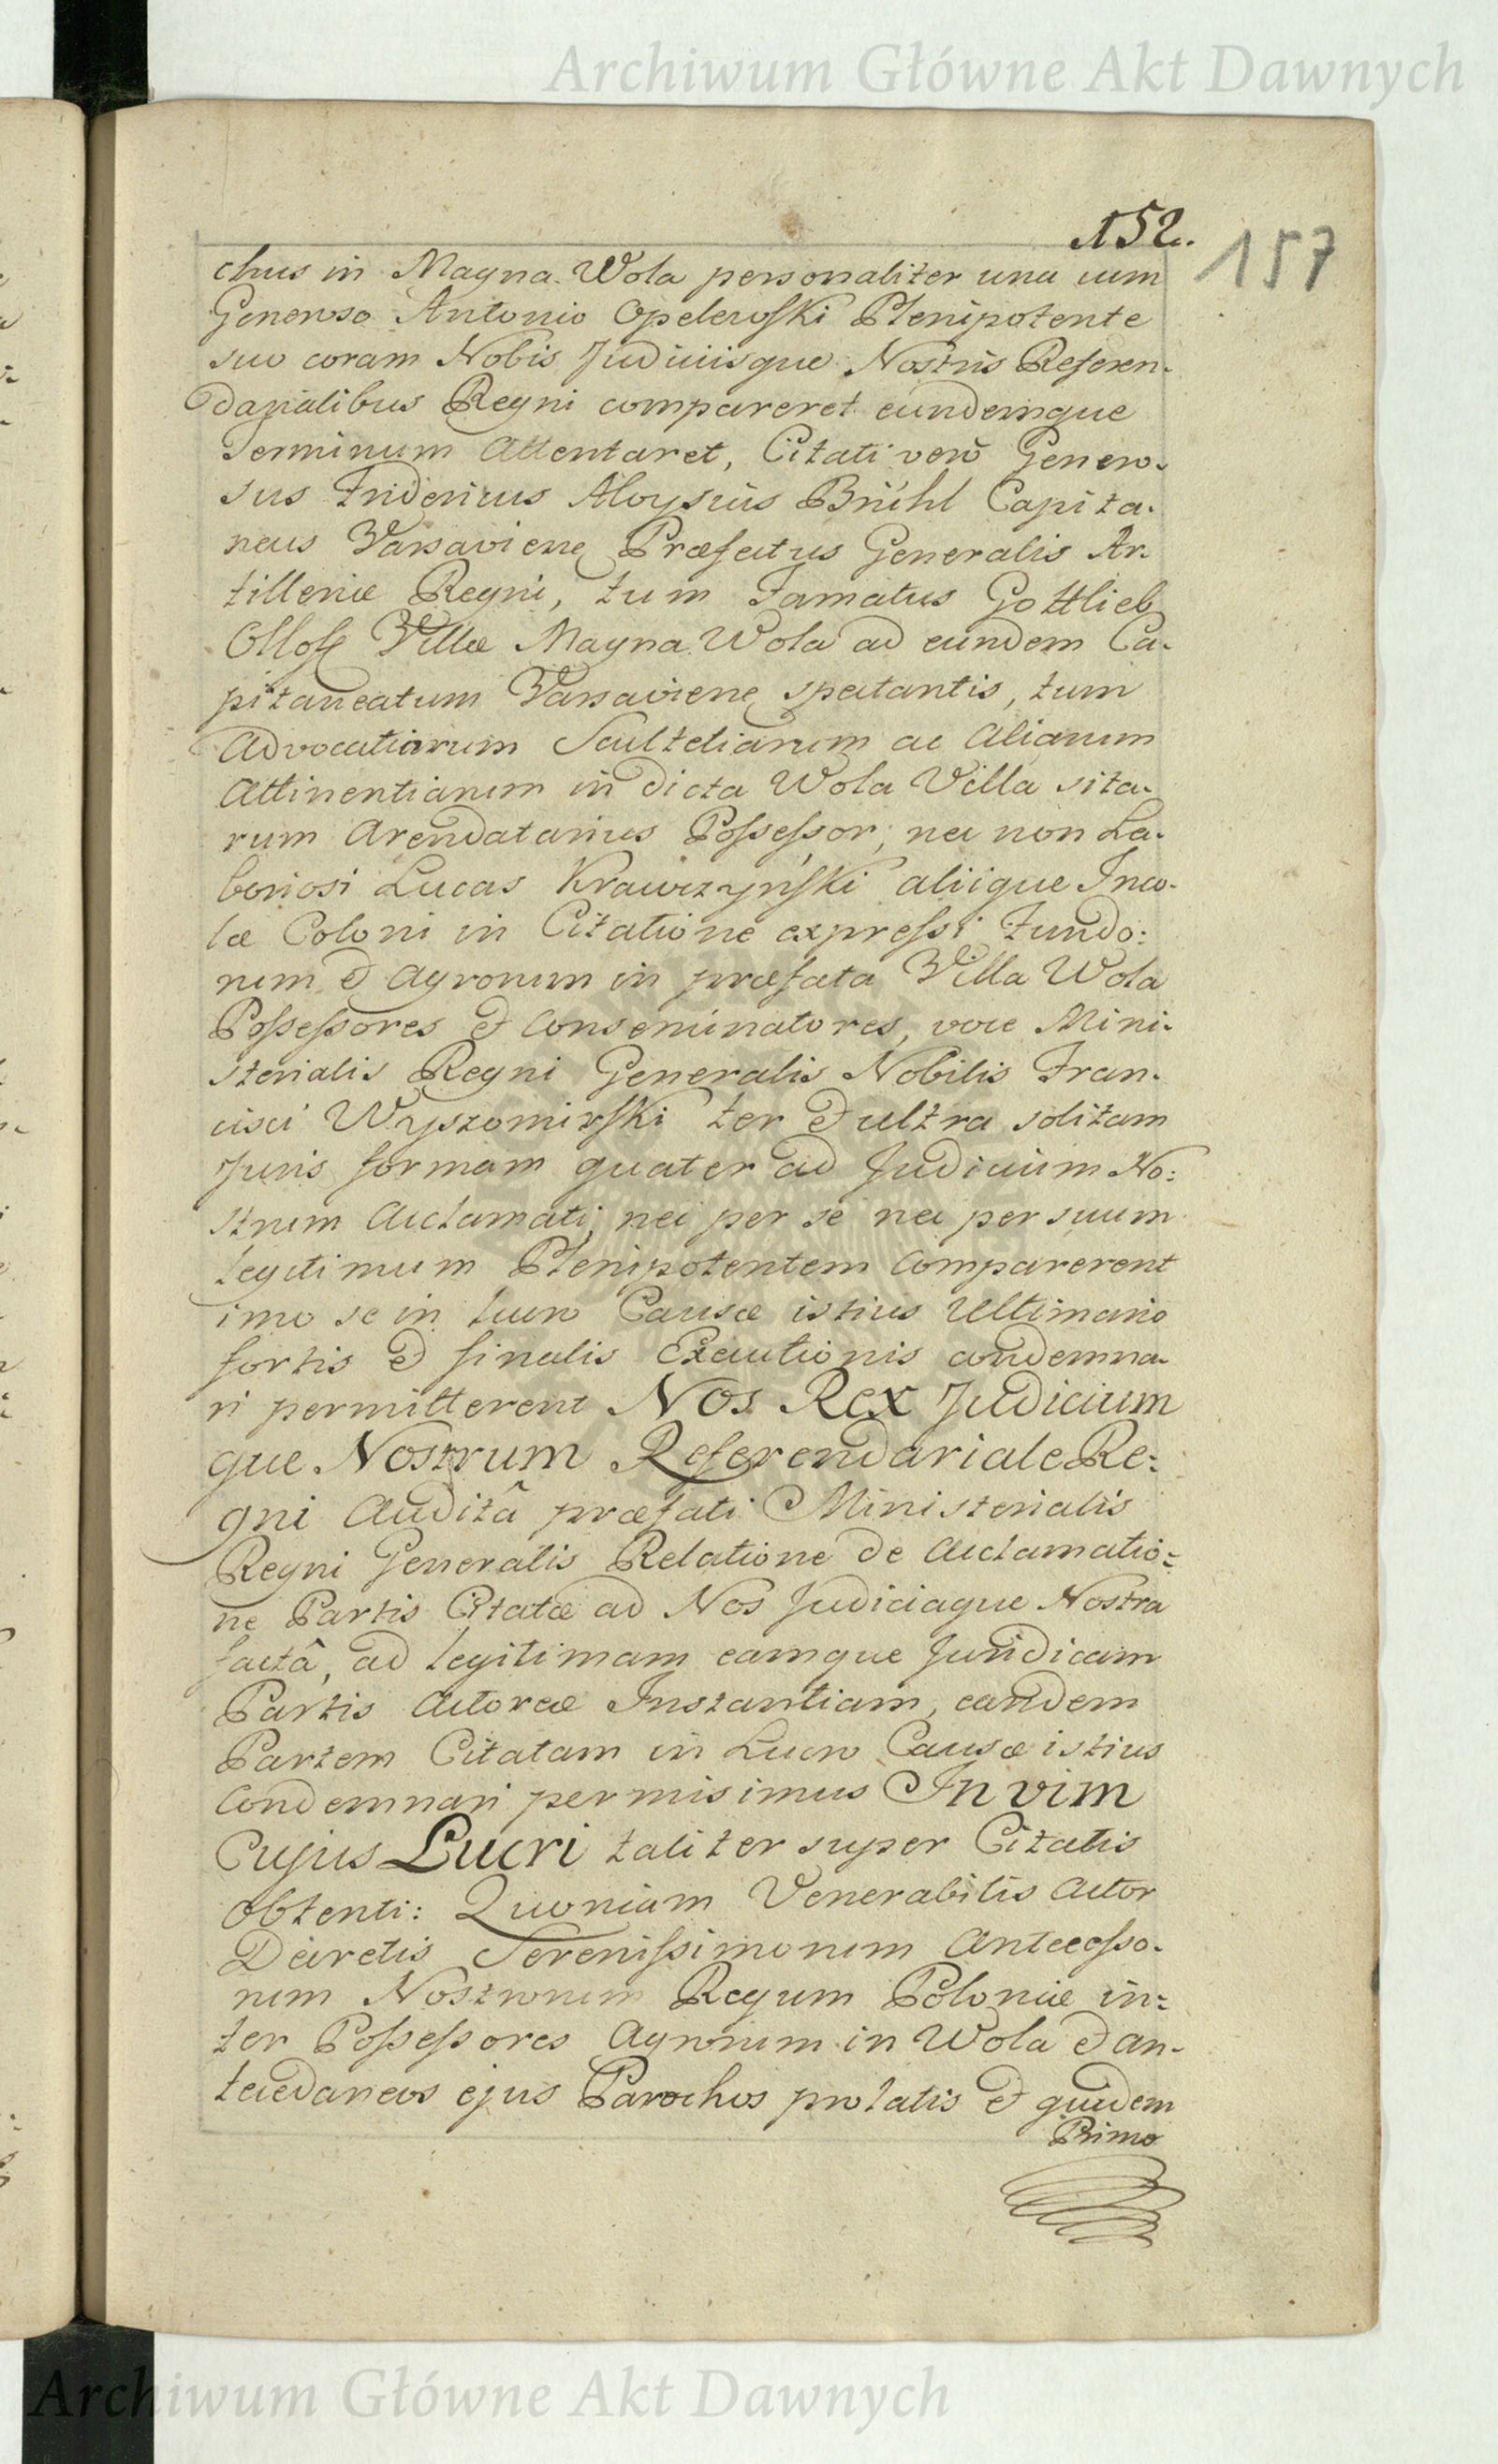 Archiwum Główne Akt Dawnych
152.
157
chus in Magna Wola personaliter una cum
Generoso Antonio Opelewski Plenipotente
suo coram Nobis Judiciisque Nostris Referen-
darialibus Regni compareret eundemque
Terminum attentaret, Citati verò Genero-
sus Fridericus Aloysius Brühl Capita-
neus Varsaviensis Præfectus Generalis Ar-
tilleriæ Regni, tum Famatus Gottlieb
Villæ Magna Wola ad eundem Ca-
pitaneatum Varsaviensem spectantis, tum
Advocatiarum Scultetiarum ac Aliarum
Attinentiarum in dicta Wola Villa sita-
rum Arendatarius Possessor, nec non La-
boriosi Lucas Krawczyński aliique Inco-
læ Coloni in Citatione expressi Fundo:
rum et Agrorum in præfata Villa Wola
Possessores et Conseminatores, voce Mini-
sterialis Regni Generalis Nobilis Fran-
cisci Wyszomirski ter et ultra solitam
Juris formam quater ad Judicium No:
strum Acclamati, nec per se nec per suum
legitimum Plenipotentem Comparerent
imo se in lucro Causæ istius Ultimario
fortis et finalis Executionis condemna-
ri permitterent Nos Rex Judicium
que Nostrum Referendariale Re:
gni Auditâ præfati Ministerialis
Regni Generalis Relatione de Acclamatio:
ne Partis Citatæ ad Nos Judiciaque Nostra
factâ, ad legitimam eamque Juridicam
Partis Actoreæ Instantiam, eandem
Partem Citatam in Lucro Causæ istius
Condemnari permisimus In vim
Cujus Lucri taliter super Citatis
Obtenti: Quoniam Venerabilis Actor
Decretis Serenissimorum Antecesso-
rum Nostrorum Regum Poloniæ in:
ter Possessores Agrorum in Wola et an-
tecedaneos ejus Parochos prolatis et quidem
Primo
Archiwum Główne Akt Dawnych